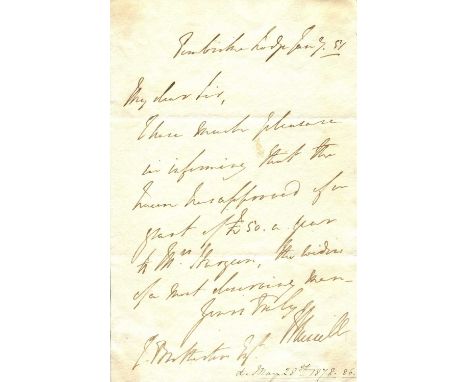 Pembroke Lodge Jany. 7. 51
My dear Sir,
I have much pleasure
in informing that the
Queen has approved of a
grant of £50. a year
to Mrs Sturgeon, the widow
of a most deserving man.
Yours truly
J Russell
J. Brotherton Esqr.
d. May 28th 1878. 86.